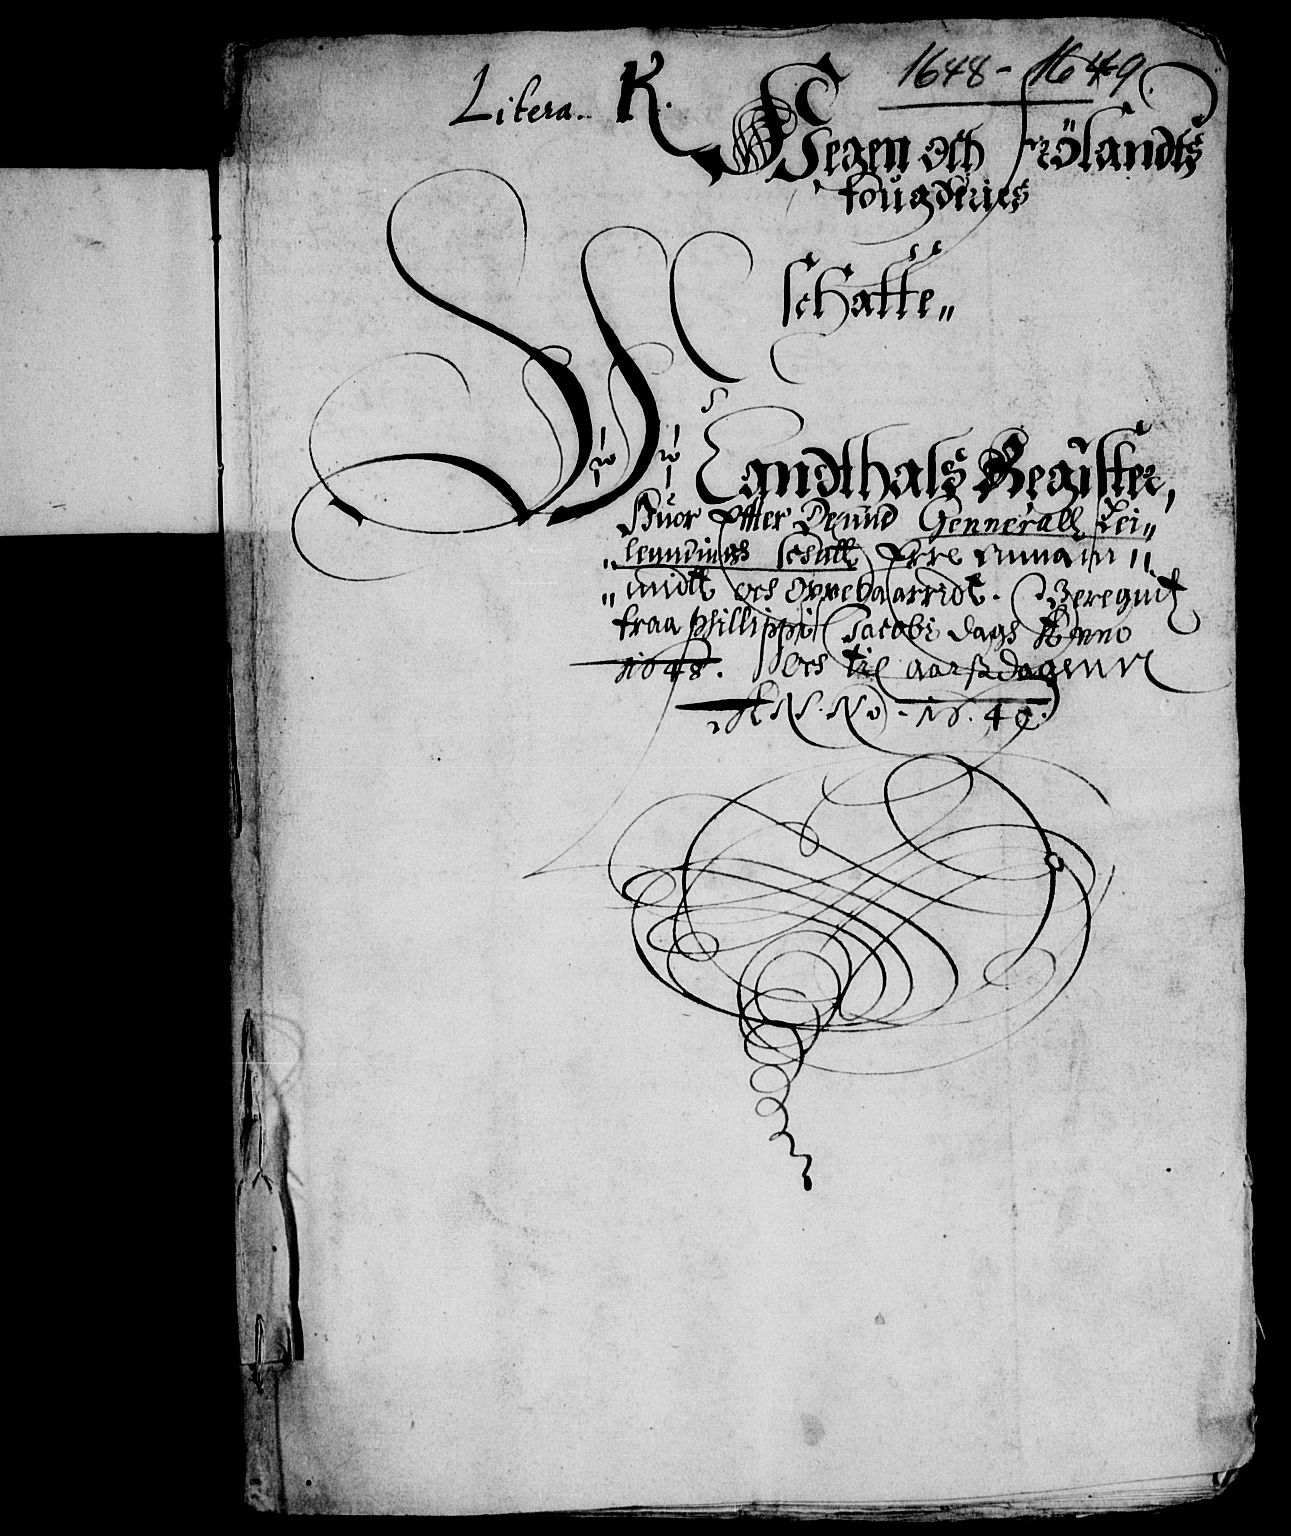 1648 - 1649.
Litera. K.
Wegen och Frölandts
fougderies
schatte„
Mandthals Register,
Huor effter Denne Gennerall Lei„
„lendings schatt Ere Annam„
„midt och oppebaarridt. Beregnit
fraa Phillippi Jacobi dags Anno
1648. och til aarsdagenn
ANNO - 1649.